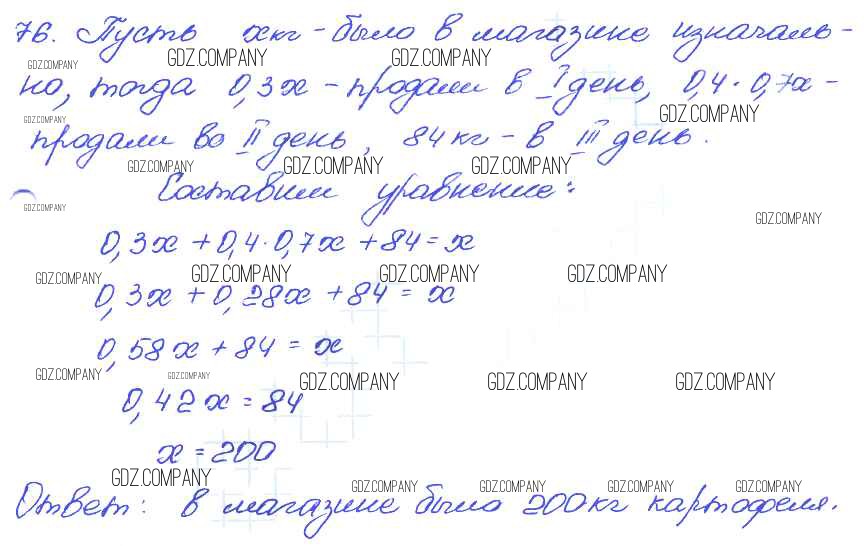 76. Пусть x кг - было в магазине изначаль-
GDZ.COMPANY GDZ.COMPANY GDZ.COMPANY
но, тогда 0,3x - продали в I день, 0,4·0,7x -
GDZ.COMPANY GDZ.COMPANY
продали во II день, 84 кг - в III день.
GDZ.COMPANY GDZ.COMPANY GDZ.COMPANY
Составим уравнение:
GDZ.COMPANY GDZ.COMPANY
0,3x + 0,4·0,7x + 84 = x
GDZ.COMPANY GDZ.COMPANY GDZ.COMPANY GDZ.COMPANY
0,3x + 0,28x + 84 = x
0,58x + 84 = x
GDZ.COMPANY GDZ.COMPANY GDZ.COMPANY GDZ.COMPANY GDZ.COMPANY
0,42x = 84
x = 200
GDZ.COMPANY GDZ.COMPANY GDZ.COMPANY GDZ.COMPANY GDZ.COMPANY
Ответ: в магазине было 200 кг картофеля.